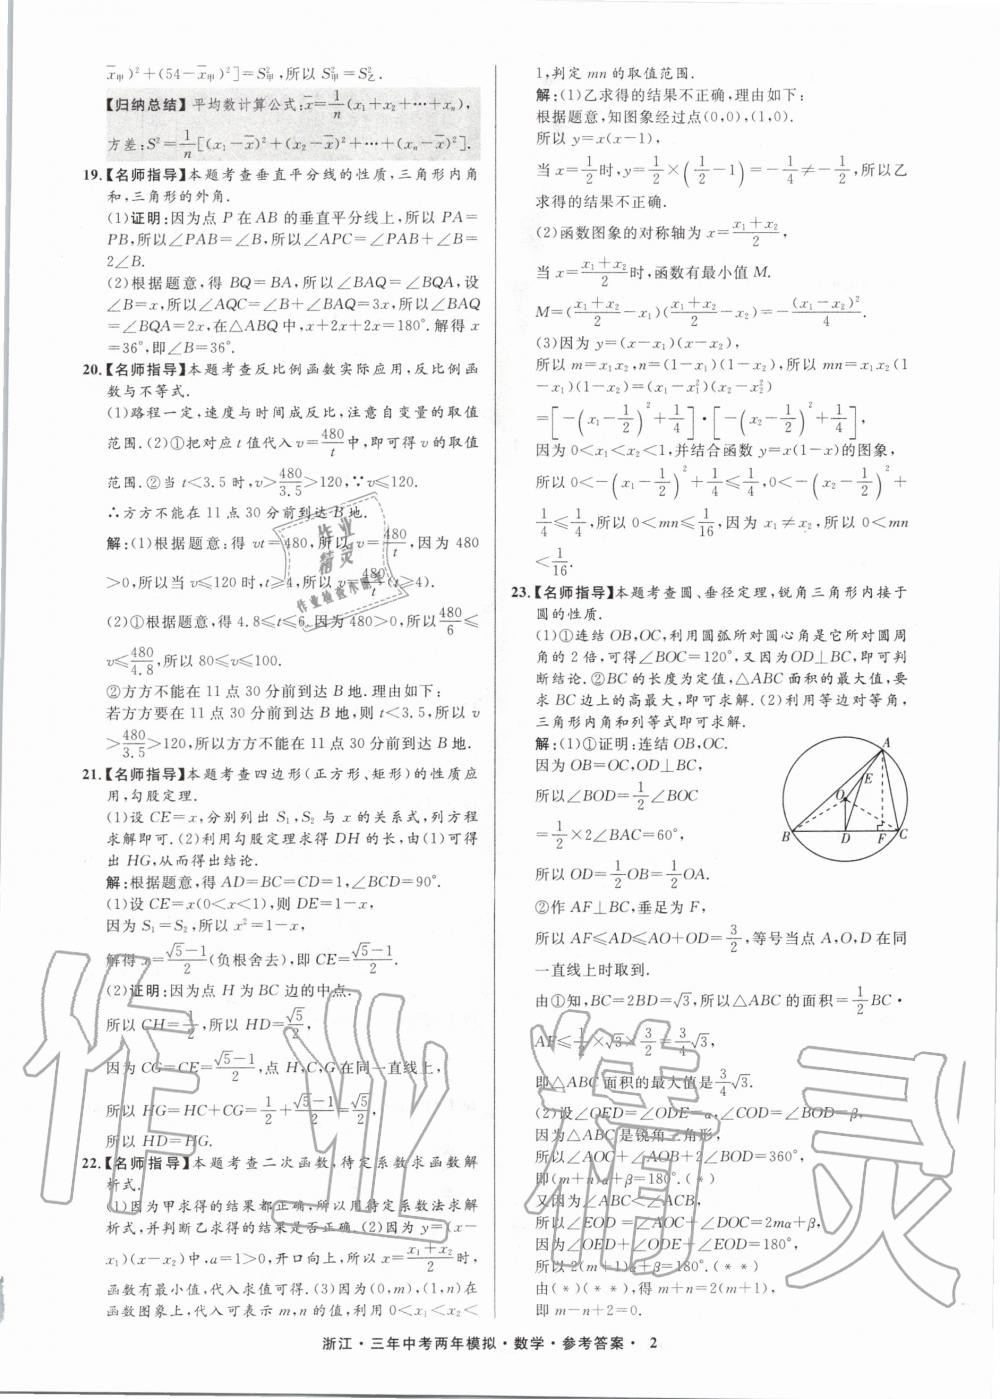 x̄甲)²+(54-x̄甲)²]=S²甲,所以 S²甲=S²乙.
【归纳总结】平均数计算公式:x̄=1/n(x₁+x₂+…+xₙ),
方差:S²=1/n[(x₁-x̄)²+(x₂-x̄)²+…+(xₙ-x̄)²].
19.【名师指导】本题考查垂直平分线的性质,三角形内角
和,三角形的外角.
(1)证明:因为点 P 在 AB 的垂直平分线上,所以 PA=
PB,所以∠PAB=∠B,所以∠APC=∠PAB+∠B=
2∠B.
(2)根据题意,得 BQ=BA,所以∠BAQ=∠BQA,设
∠B=x,所以∠AQC=∠B+∠BAQ=3x,所以∠BAQ
=∠BQA=2x,在△ABQ 中,x+2x+2x=180°.解得 x
=36°,即∠B=36°.
20.【名师指导】本题考查反比例函数实际应用,反比例函
数与不等式.
(1)路程一定,速度与时间成反比,注意自变量的取值
范围.(2)①把对应 t 值代入 v=480/t 中,即可得 v 的取值
范围.②当 t<3.5 时,v>480/3.5>120,∵v≤120.
∴方方不能在 11 点 30 分前到达 B 地.
解:(1)根据题意:得 vt=480,所以 v=480/t,因为 480
>0,所以当 v≤120 时,t≥4,所以 v=480/t(t≥4).
(2)①根据题意,得 4.8≤t≤6.因为 480>0,所以480/6
≤v≤480/4.8,所以 80≤v≤100.
②方方不能在 11 点 30 分前到达 B 地.理由如下:
若方方要在 11 点 30 分前到达 B 地,则 t<3.5,所以 v
>480/3.5>120,所以方方不能在 11 点 30 分前到达 B 地.
21.【名师指导】本题考查四边形(正方形、矩形)的性质应
用,勾股定理.
(1)设 CE=x,分别列出 S₁,S₂ 与 x 的关系式,列方程
求解即可.(2)利用勾股定理求得 DH 的长,由(1)可得
出 HG,从而得出结论.
解:根据题意,得 AD=BC=CD=1,∠BCD=90°.
(1)设 CE=x(0<x<1),则 DE=1-x,
因为 S₁=S₂,所以 x²=1-x,
解得 x=(√5-1)/2(负根舍去),即 CE=(√5-1)/2.
(2)证明:因为点 H 为 BC 边的中点,
所以 CH=1/2,所以 HD=√5/2,
因为 CG=CE=(√5-1)/2,点 H,C,G 在同一直线上,
所以 HG=HC+CG=1/2+(√5-1)/2=√5/2,
所以 HD=HG.
22.【名师指导】本题考查二次函数,待定系数求函数解
析式.
(1)因为甲求得的结果都正确,所以用待定系数法求解
析式,并判断乙求得的结果是否正确.(2)因为 y=(x-
x₁)(x-x₂)中,a=1>0,开口向上,所以 x=(x₁+x₂)/2时,
函数有最小值,代入求值可得.(3)因为(0,m),(1,n)在
函数图象上,代入可表示 m,n 的值,利用 0<x₁<x₂<
1,判定 mn 的取值范围.
解:(1)乙求得的结果不正确,理由如下:
根据题意,知图象经过点(0,0),(1,0).
所以 y=x(x-1),
当 x=1/2时,y=1/2×(1/2-1)=-1/4≠-1/2,所以乙
求得的结果不正确.
(2)函数图象的对称轴为 x=(x₁+x₂)/2,
当 x=(x₁+x₂)/2时,函数有最小值 M.
M=((x₁+x₂)/2-x₁)((x₁+x₂)/2-x₂)=-(x₁-x₂)²/4.
(3)因为 y=(x-x₁)(x-x₂),
所以 m=x₁x₂,n=(1-x₁)(1-x₂),所以 mn=x₁x₂(1
-x₁)(1-x₂)=(x₁-x₁²)(x₂-x₂²)
=[-(x₁-1/2)²+1/4]·[-(x₂-1/2)²+1/4],
因为 0<x₁<x₂<1,并结合函数 y=x(1-x)的图象,
所以 0<-(x₁-1/2)²+1/4≤1/4,0<-(x₂-1/2)²+
1/4≤1/4,所以 0<mn≤1/16,因为 x₁≠x₂,所以 0<mn
<1/16.
23.【名师指导】本题考查圆、垂径定理,锐角三角形内接于
圆的性质.
(1)①连结 OB,OC,利用圆弧所对圆心角是它所对圆周
角的 2 倍,可得∠BOC=120°,又因为OD⊥BC,即可判
断结论.②BC 的长度为定值,△ABC 面积的最大值,要
求 BC 边上的高最大,即可求解.(2)利用等边对等角,
三角形内角和列等式即可求解.
解:(1)①证明:连结 OB,OC.
因为 OB=OC,OD⊥BC,
所以∠BOD=1/2∠BOC
=1/2×2∠BAC=60°,
所以 OD=1/2OB=1/2OA.
A
E
O
B
D
F
C
②作 AF⊥BC,垂足为 F,
所以 AF≤AD≤AO+OD=3/2,等号当点 A,O,D 在同
一直线上时取到.
由①知,BC=2BD=√3,所以△ABC 的面积=1/2BC·
AF≤1/2×√3×3/2=3/4√3,
即△ABC 面积的最大值是3/4√3.
(2)设∠OED=∠ODE=α,∠COD=∠BOD=β,
因为△ABC 是锐角三角形,
所以∠AOC+∠AOB+2∠BOD=360°,
即(m+n)α+β=180°.(*)
又因为∠ABC<∠ACB,
所以∠EOD=∠AOC+∠DOC=2mα+β,
因为∠OED+∠ODE+∠EOD=180°,
所以 2(m+1)α+β=180°.(**)
由(*)(**),得 m+n=2(m+1),
即 m-n+2=0.
浙江·三年中考两年模拟·数学·参考答案· 2
作业精灵
作业
精灵
作业检查小帮手